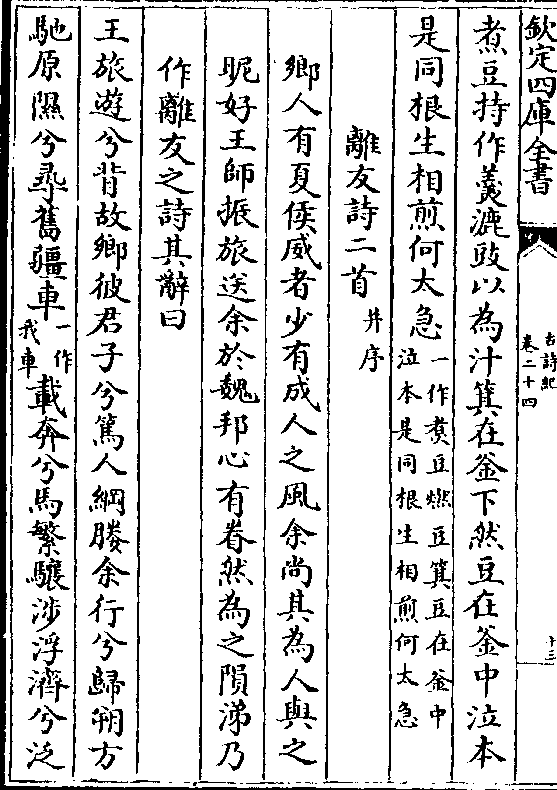 欽定四庫全書
古詩紀
卷二十四
十三
煮豆持作羮漉豉以為汁箕在釜下然豆在釜中泣本
是同根生相煎何太急一作煮豆燃豆箕豆在釜中
泣本是同根生相煎何太急
離友詩二首并序
鄉人有夏侯威者少有成人之風余尚其為人與之
昵好王師振旅送余於魏邦心有眷然為之隕涕乃
作離友之詩其辭曰
王旅遊兮背故鄉彼君子兮篤人綱媵余行兮歸朔方
馳原隰兮尋舊疆車一作
我車載奔兮馬繁驤涉浮濟兮泛